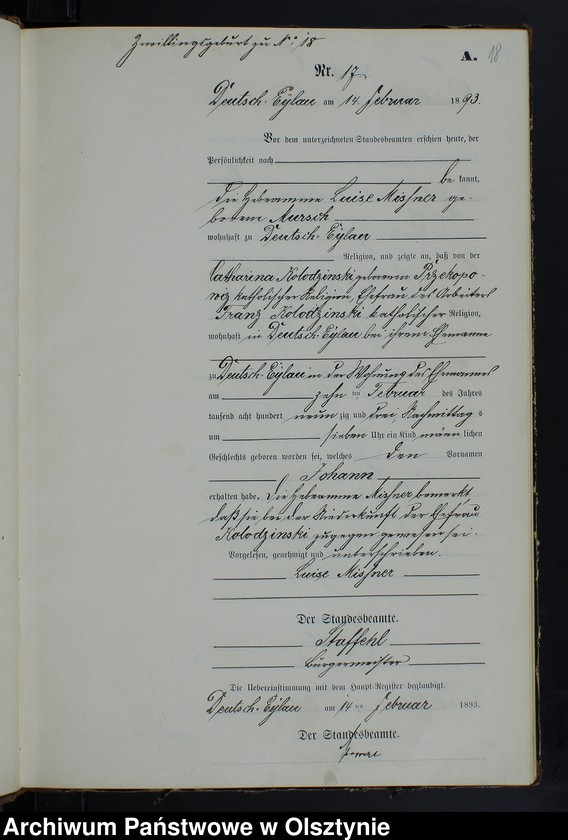 Zwillingsgeburt zu No: 18
A. 18
Nr. 17
Deutsch-Eylau am 14. Februar 1893.
Vor dem unterzeichneten Standesbeamten erschien heute, der
Persönlichkeit nach
be kannt,
die Hebeamme Luise Missner ge-
borene Mursch
wohnhaft zu Deutsch-Eylau
Religion, und zeigte an, daß von der
Catharina Kolodzinski geborenen Przekopo-
wiz katholischer Religion, Ehefrau des Arbeiters
Franz Kolodzinski katholischer Religion,
wohnhaft in Deutsch-Eylau bei ihrem Ehemanne
zu Deutsch-Eylau in der Wohnung des Ehemannes
am zehn ten Februar des Jahres
tausend acht hundert neun zig und drei, Nachmittag s
um sieben Uhr ein Kind männ lichen
Geschlechts geboren worden sei, welches den Vornamen
Johann
erhalten habe. Die Hebeamme Missner bemerkt
daß sie bei der Niederkunft der Ehefrau
Kolodzinski zugegen gewesen sei.
Vorgelesen, genehmigt und unterschrieben.
Luise Missner
Der Standesbeamte.
Staffehl
Bürgermeister
Die Uebereinstimmung mit dem Haupt-Register beglaubigt.
Deutsch-Eylau am 14 ten Februar 1893.
Der Standesbeamte.
Archiwum Państwowe w Olsztynie